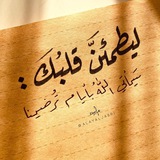 ليطمئنَّ قلبُكَ:
سيأتي اللهُ بأيامٍ تُرضينا